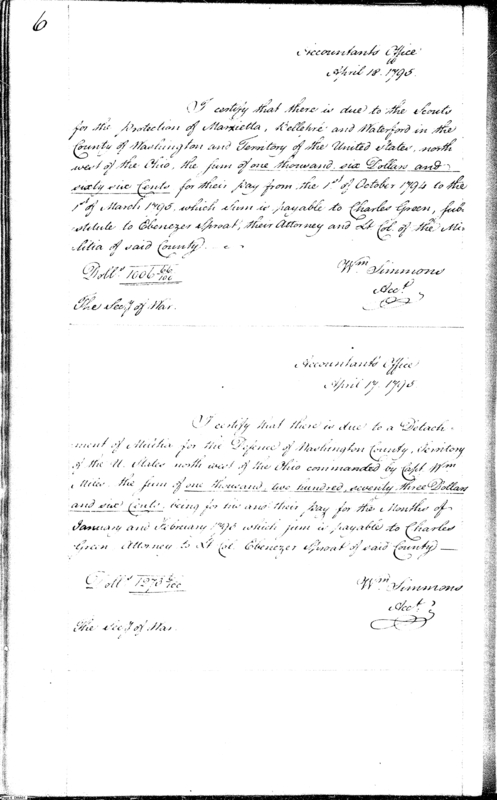 6
Accountants Office
April 18. 1795.
I certify that there is due to the Scouts
for the Protection of Marietta, Bellehré and Waterford in the
County of Washington and Territory of the United States, north
west of the Ohio, the sum of one thousand six Dollars and
sixty six Cents for their pay from the 1st of October 1794 to the
1st of March 1795, which sum is payable to Charles Green, sub-
stitute to Ebenezer Sproat, their Attorney and Lt Col. of the Mi-
litia of said County.
Dolls. 1006 66/100
Wm Simmons
Acct.
The Secy. of War.
Accountants Office
April 17. 1795
I certify that there is due to a Detach-
ment of Militia for the Defence of Washington County, Territory
of the U. States north west of the Ohio commanded by Capt Wm
Mills the sum of one thousand two hundred seventy three Dollars
and six Cents, being for his and their pay for the Months of
January and February 1795 which sum is payable to Charles
Green Attorney to Lt Col. Ebenezer Sproat of said County —
Dolls. 1273 6/100
Wm. Simmons
Acct.
The Secy. of War.